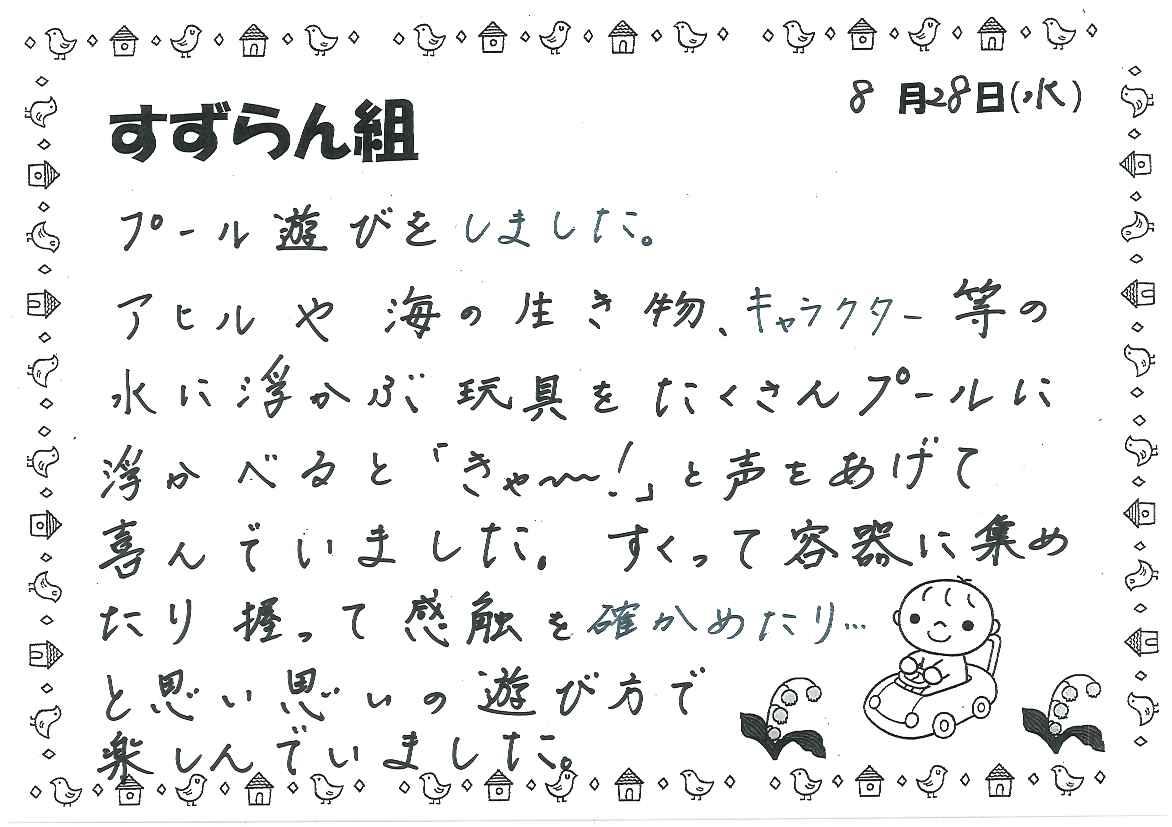 8月28日(水)
すずらん組
プール遊びをしました。
アヒルや海の生き物、キャラクター等の
水に浮かぶ玩具をたくさんプールに
浮かべると「きゃ〜〜!」と声をあげて
喜んでいました。すくって容器に集め
たり握って感触を確かめたり…
と思い思いの遊び方で
楽しんでいました。